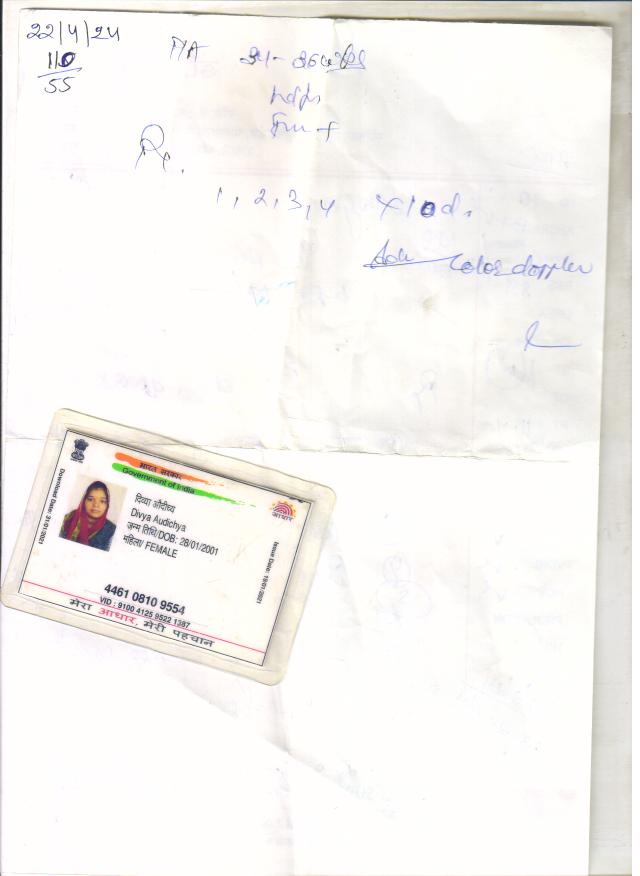 22/4/24
110
55
P/A 34-36
Rx.
1, 2, 3, 4 x 10 d.
Adv color doppler
भारत सरकार
Government of India
दिव्या औदीच्य
Divya Audichya
जन्म तिथि/DOB: 28/01/2001
महिला/ FEMALE
Download Date: 31/01/2021
Issue Date: 19/01/2021
आधार
4461 0810 9554
VID : 9100 4125 9522 1387
मेरा आधार, मेरी पहचान